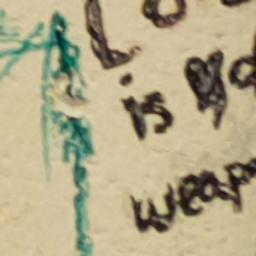 Lo
is yo
weap